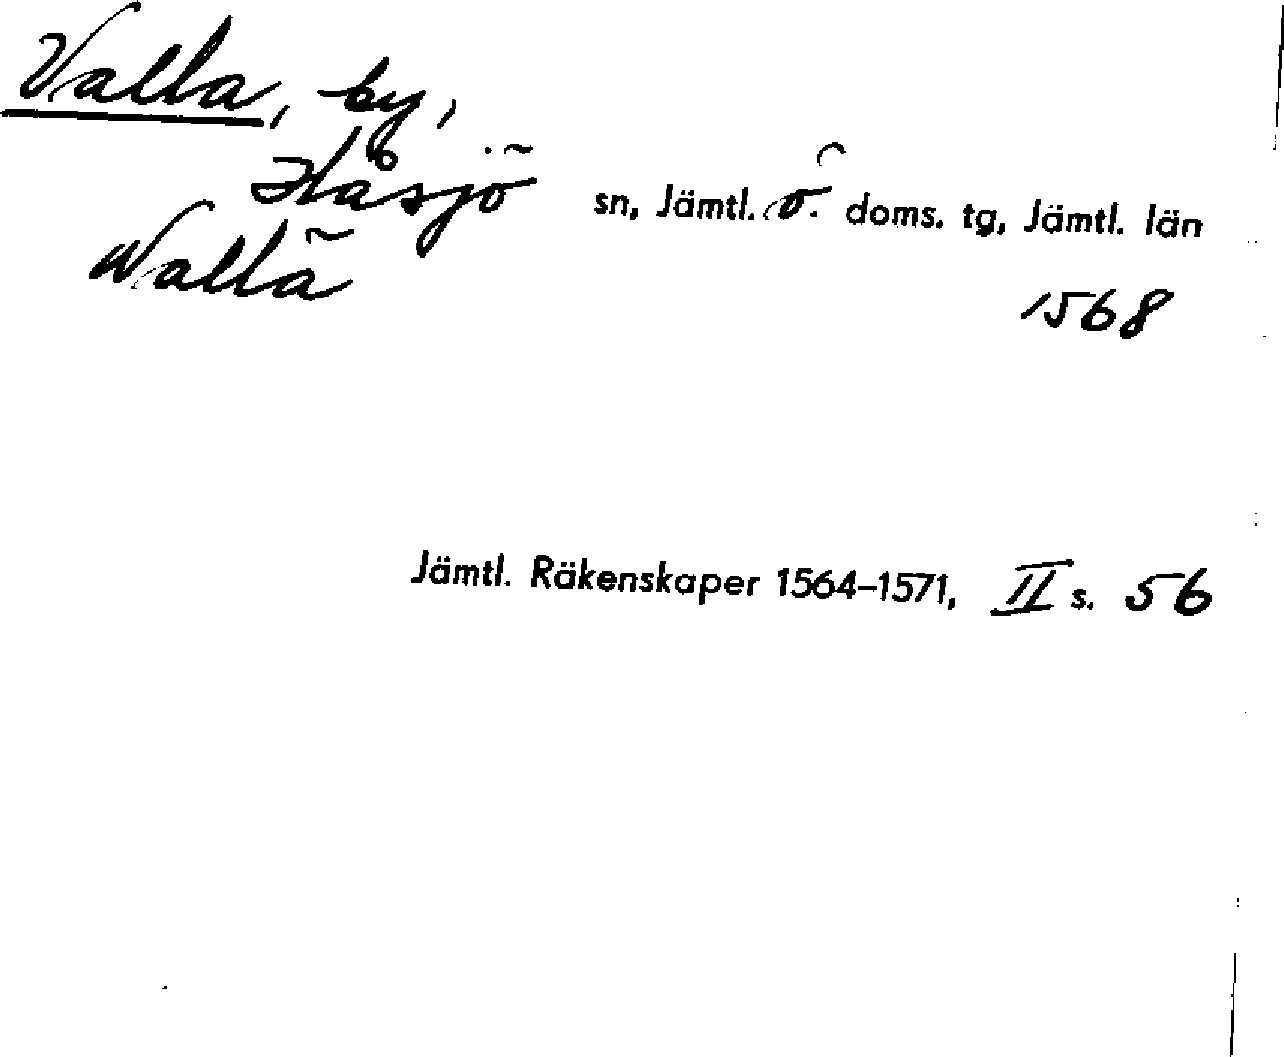 Valla, by,
Håsjö sn, Jämtl. ö. doms. tg, Jämtl. län
Wallä 1568
Jämtl. Räkenskaper 1564–1571, II s. 56